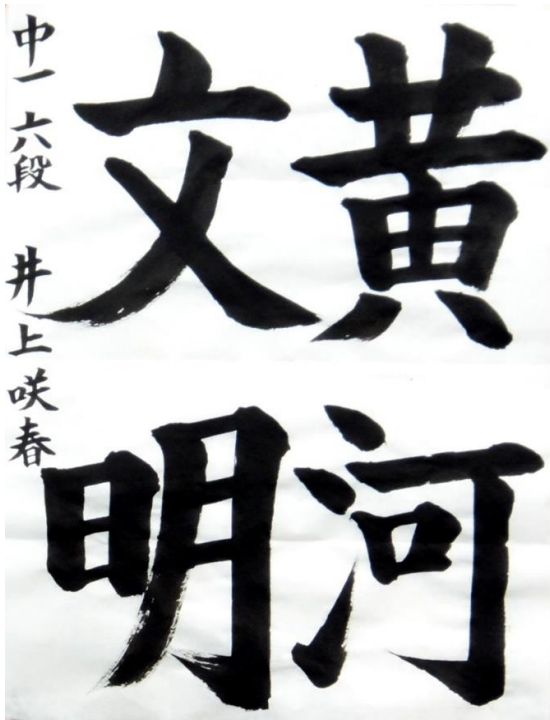 黄河
文明
中一 六段 井上咲春